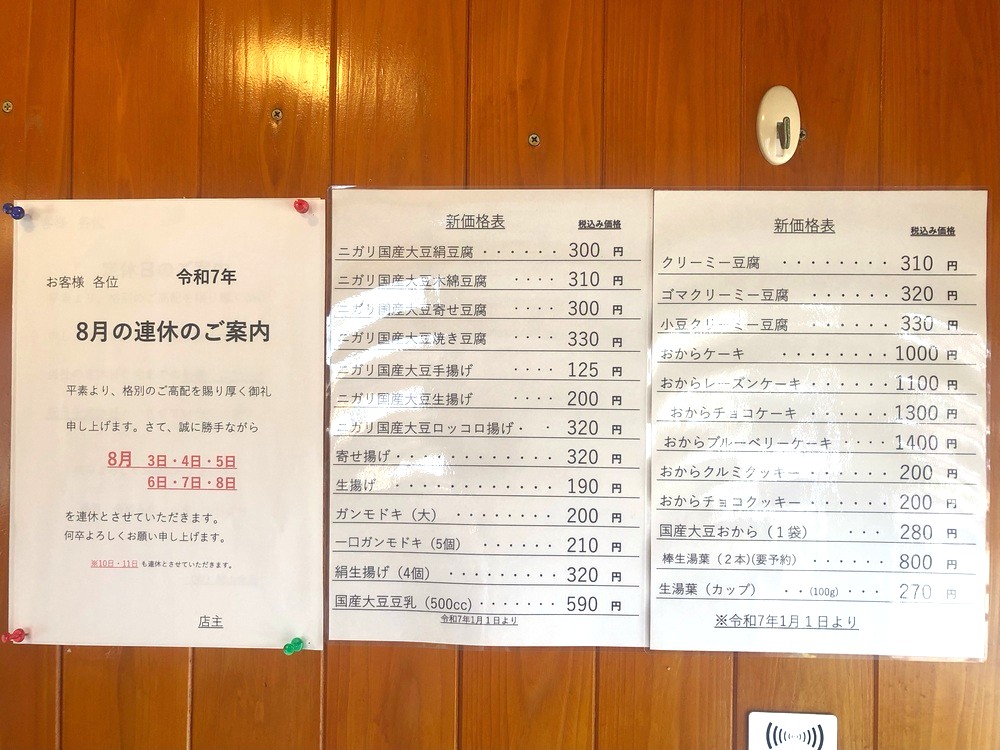 お客様 各位 令和7年
8月の連休のご案内
平素より、格別のご高配を賜り厚く御礼
申し上げます。さて、誠に勝手ながら
8月 3日・4日・5日
6日・7日・8日
を連休とさせていただきます。
何卒よろしくお願い申し上げます。
※10日・11日 も連休とさせていただきます。
店主
新価格表 税込み価格
ニガリ国産大豆絹豆腐 ・・・・・・・ 300 円
ニガリ国産大豆木綿豆腐 ・・・・ 310 円
ニガリ国産大豆寄せ豆腐 ・・・・ 300 円
ニガリ国産大豆焼き豆腐 ・・・・ 330 円
ニガリ国産大豆手揚げ ・・・・ 125 円
ニガリ国産大豆生揚げ ・・・・ 200 円
ニガリ国産大豆ロッコロ揚げ・ ・ 320 円
寄せ揚げ・・・・・・・・・・・・ 320 円
生揚げ ・・・・・・・・・・・・ 190 円
ガンモドキ（大） ・・・・・・・・ 200 円
一口ガンモドキ（5個） ・・・・・・・ 210 円
絹生揚げ（4個） ・・・・・・・・・ 320 円
国産大豆豆乳（500cc）・・・・・・・ 590 円
令和7年1月１日より
新価格表 税込み価格
クリーミー豆腐 ・・・・・・・・ 310 円
ゴマクリーミー豆腐 ・・・・・・・ 320 円
小豆クリーミー豆腐 ・・・・・・・ 330 円
おからケーキ ・・・・・・・・・ 1000 円
おからレーズンケーキ ・・・・・・・ 1100 円
おからチョコケーキ ・・・・・・・ 1300 円
おからブルーベリーケーキ ・・・・・ 1400 円
おからクルミクッキー ・・・・・・・ 200 円
おからチョコクッキー ・・・・・・・ 200 円
国産大豆おから（１袋） ・・・ 280 円
棒生湯葉（２本)(要予約） ・・・・・・ 800 円
生湯葉（カップ） ・・(100g)・・・ 270 円
※令和7年1月１日より